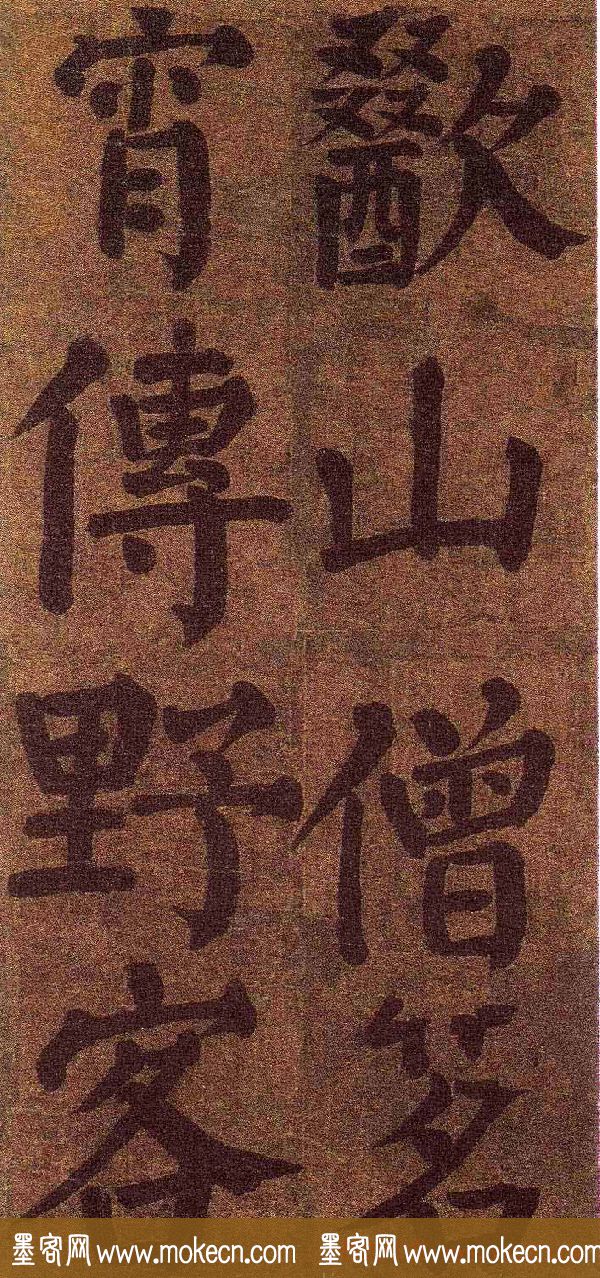 歠山僧茗
宵傳野客
墨客网 www.mokecn.com 墨客网 www.mokecn.com